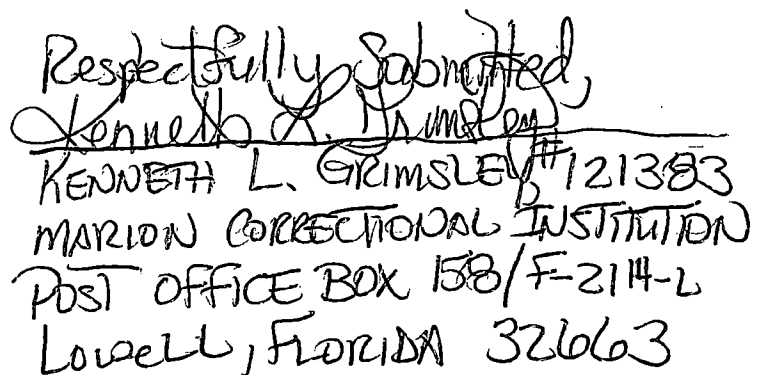 Respectfully Submitted,
Kenneth L. Grimsley
KENNETH L. GRIMSLEY, #121383
MARION CORRECTIONAL INSTITUTION
POST OFFICE BOX 158/F-2114-L
LOWELL, FLORIDA 32663